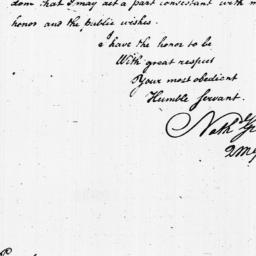 dom that I may act a part consistant with m
honor and the public wishes.
I have the honor to be
With great respect
Your most obedient
Humble Servant.
Nath